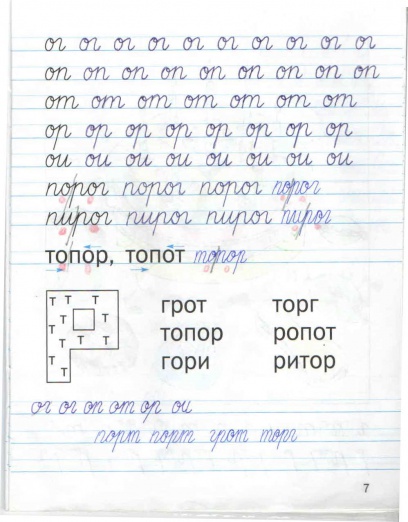 ог ог ог ог ог ог ог ог ог ог
оп оп оп оп оп оп оп оп оп
от от от от от от от
ор ор ор ор ор ор ор ор
ои ои ои ои ои ои ои ои
порог порог порог порог
пирог пирог пирог пирог
топор, топот топор
Т Т Т
Т Т
Т Т Т
Т
Т
грот торг
топор ропот
гори ритор
ог ог оп от ор ои
порт порт грот торг
7